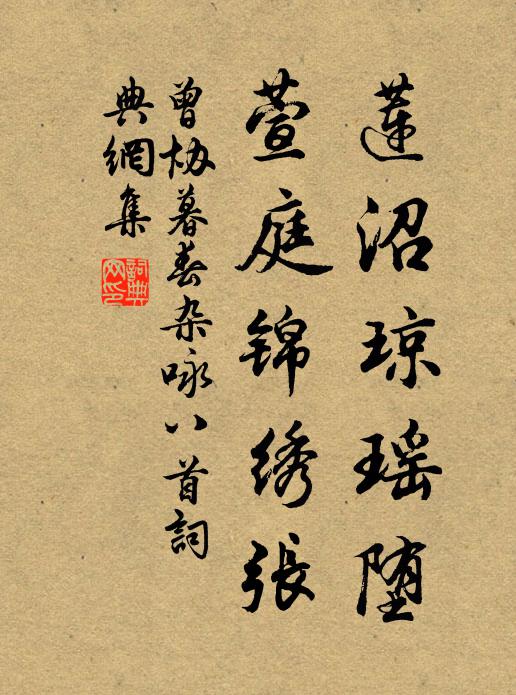 莲沼琼瑶堕
萱庭锦绣張
曾协暮春杂咏八首詞
典網集
詞典
网印